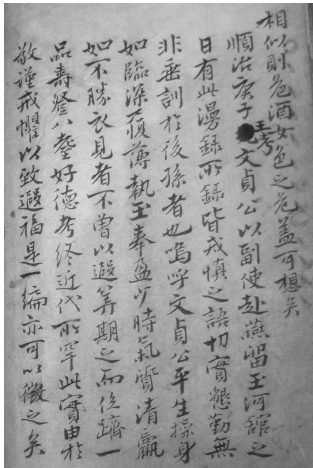 相似則危酒女色之危盖可想矣
順治庚子王考文貞公以副使赴燕留玉河舘之
日有此漫錄所錄皆戒愼之語切實懇勤無
非垂訓於後孫者也嗚呼文貞公平生操身
如臨深履薄執玉奉盈少時氣質清羸
如不勝衣見者不曾以遐筭期之而俟躋一
品壽登八耋好德考終近代所罕此實由於
敬謹戒懼以致遐福是一編亦可以徵之矣